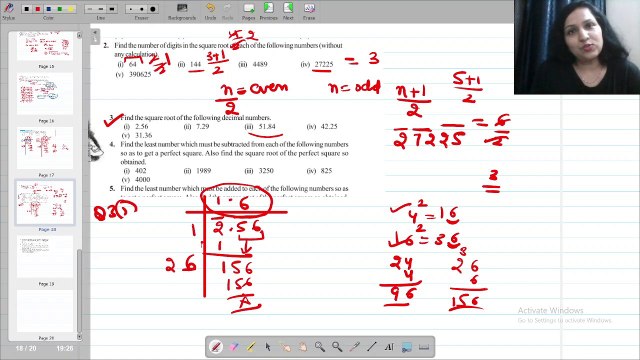 2. Find the number of digits in the square root of each of the following numbers (without
any calculation).
(i) 64
(ii) 144
(iii) 4489
(iv) 27225
(v) 390625
= 3
2/2 = 1
3+1/2
= 2
n = even
n/2
n = odd
n+1/2
5+1/2
2 7 2 2 5 = 6/2
3
3. Find the square root of the following decimal numbers.
(i) 2.56
(ii) 7.29
(iii) 51.84
(iv) 42.25
(v) 31.36
4. Find the least number which must be subtracted from each of the following numbers
so as to get a perfect square. Also find the square root of the perfect square so
obtained.
(i) 402
(ii) 1989
(iii) 3250
(iv) 825
(v) 4000
5. Find the least number which must be added to each of the following numbers so as
Q3(i)
1.6
1
2.56
1
26
156
156
4² = 16
6² = 36
24
4
96
3
26
6
156
Activate Windows
Go to Settings to activate Windows.
18 / 20
19:25